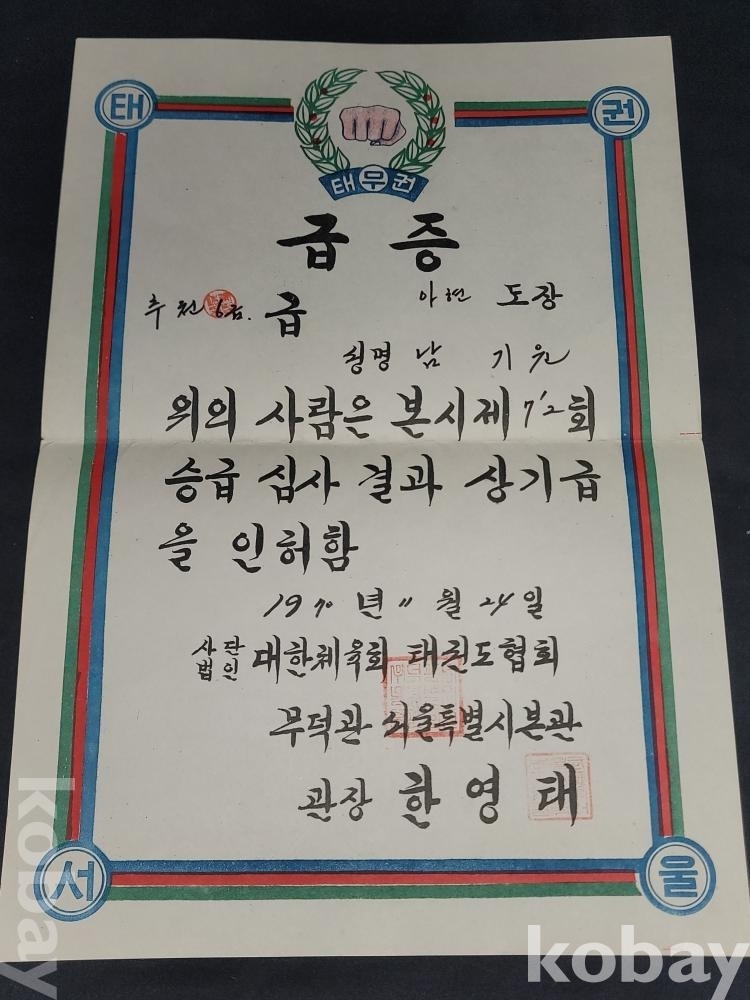 태 권
태무권
급 증
추천 6급. 급 아현 도장
성명 남 기 원
위의 사람은 본시제 72회
승급 심사 결과 상기급
을 인허함
1970년 11월 24일
사단법인 대한체육회 태권도협회
무덕관 서울특별시본관
관장 한 영 태
서 울
kobay
kobay